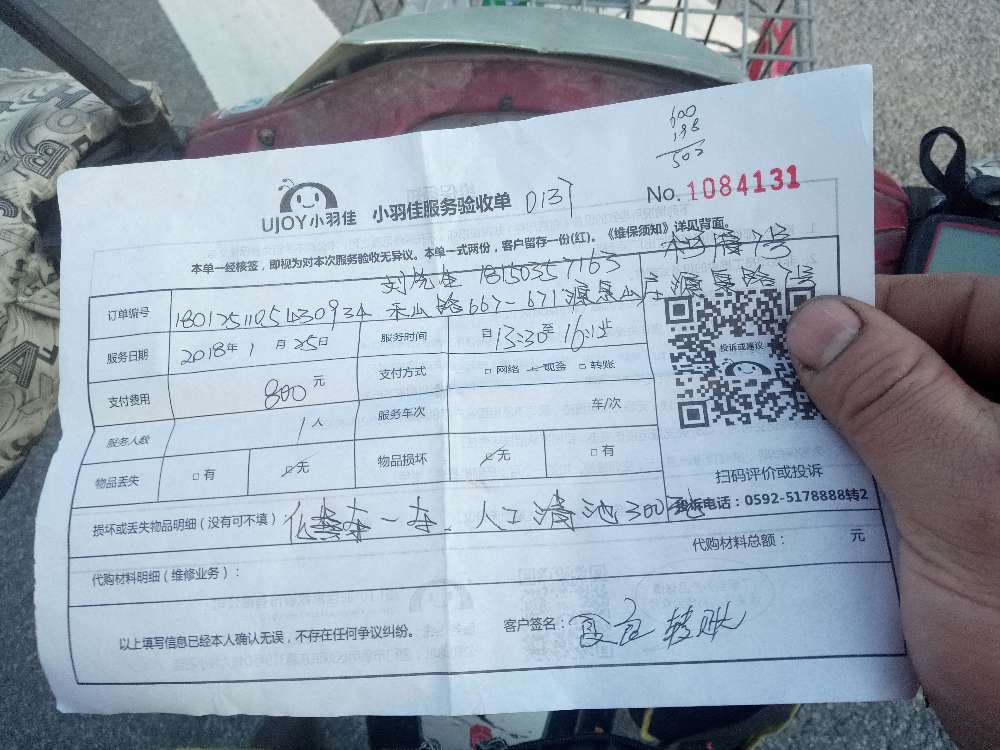 600
198
503
UJOY小羽佳 小羽佳服务验收单 D137
No. 1084131
本单一经核签，即视为对本次服务验收无异议。本单一式两份，客户留存一份(红)。《维保须知》详见背面。
刘先生 18150357163
订单编号 1801251105430934 禾山路667-671 源泉山庄 源泉路7号
服务日期 2018年1月25日 服务时间 自13:30至16:12止
支付费用 800元 支付方式 □网络 □现金 □转账
投诉或建议
服务人数 1人 服务车次 车/次
物品丢失 □有 □无 物品损坏 □无 □有
扫码评价或投诉
投诉电话：0592-5178888转2
损坏或丢失物品明细（没有可不填） 化粪车一车、人工清池300
代购材料明细（维修业务）： 代购材料总额： 元
以上填写信息已经本人确认无误，不存在任何争议纠纷。 客户签名： 转账